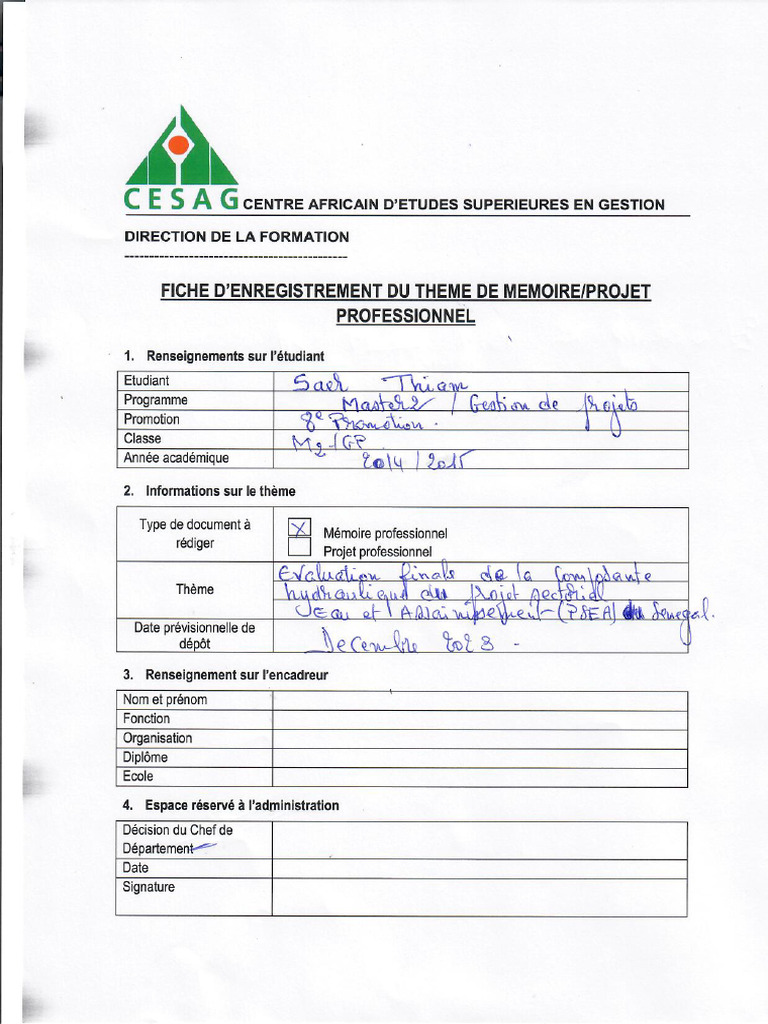 CESAG CENTRE AFRICAIN D'ETUDES SUPERIEURES EN GESTION
DIRECTION DE LA FORMATION
----------------------------------------------
FICHE D'ENREGISTREMENT DU THEME DE MEMOIRE/PROJET
PROFESSIONNEL
1. Renseignements sur l'étudiant
Etudiant Saer Thiam
Programme Master2 / Gestion de projets
Promotion 8e Promotion.
Classe M2/GP
Année académique 2014/2015
2. Informations sur le thème
Type de document à
rédiger
X Mémoire professionnel
Projet professionnel
Thème
Evaluation finale de la composante
hydraulique du Projet sectoriel
Eau et Assainissement (PSEA) du Senegal.
Date prévisionnelle de
dépôt
Decembre 2023
3. Renseignement sur l'encadreur
Nom et prénom
Fonction
Organisation
Diplôme
Ecole
4. Espace réservé à l'administration
Décision du Chef de
Département
Date
Signature